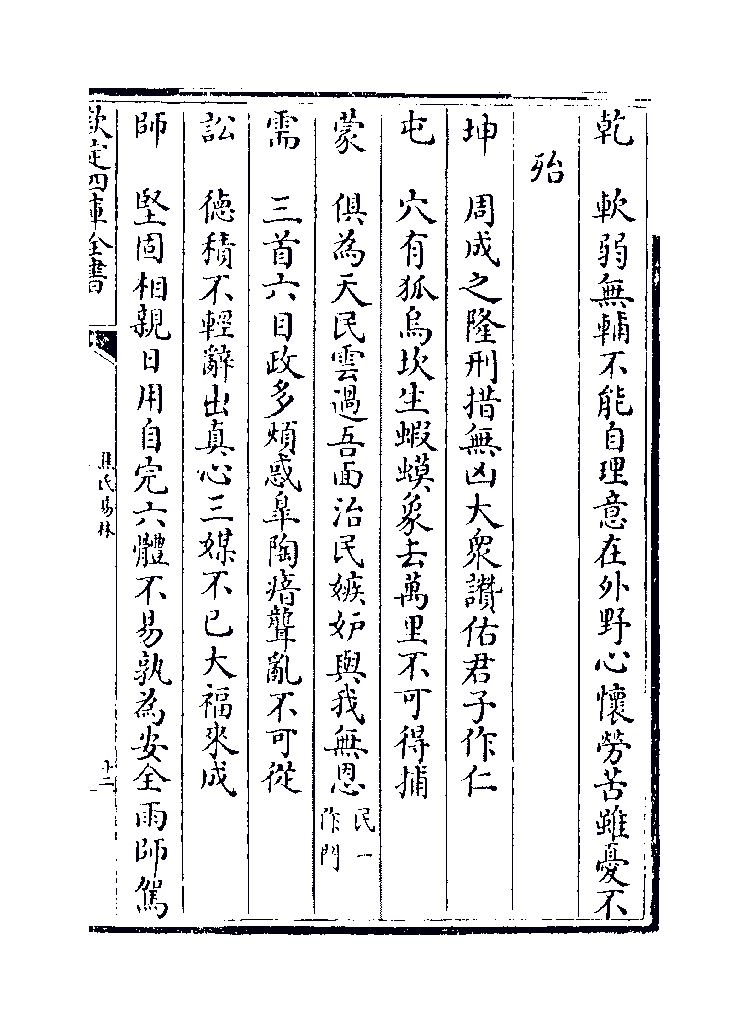 乾　軟弱無輔不能自理意在外野心懷勞苦雖憂不
殆
坤　周成之隆刑措無凶大衆讚佑君子作仁
屯　穴有狐烏坎生蝦蟆象去萬里不可得捕
蒙　俱為天民雲過吾面治民嫉妒與我無恩民一作門
需　三首六目政多煩惑臯陶瘖聾亂不可從
訟　徳積不輕辭出真心三媒不已大福來成
師　堅固相親日用自完六體不易孰為安全雨師駕
欽定四庫全書
焦氏易林
十二